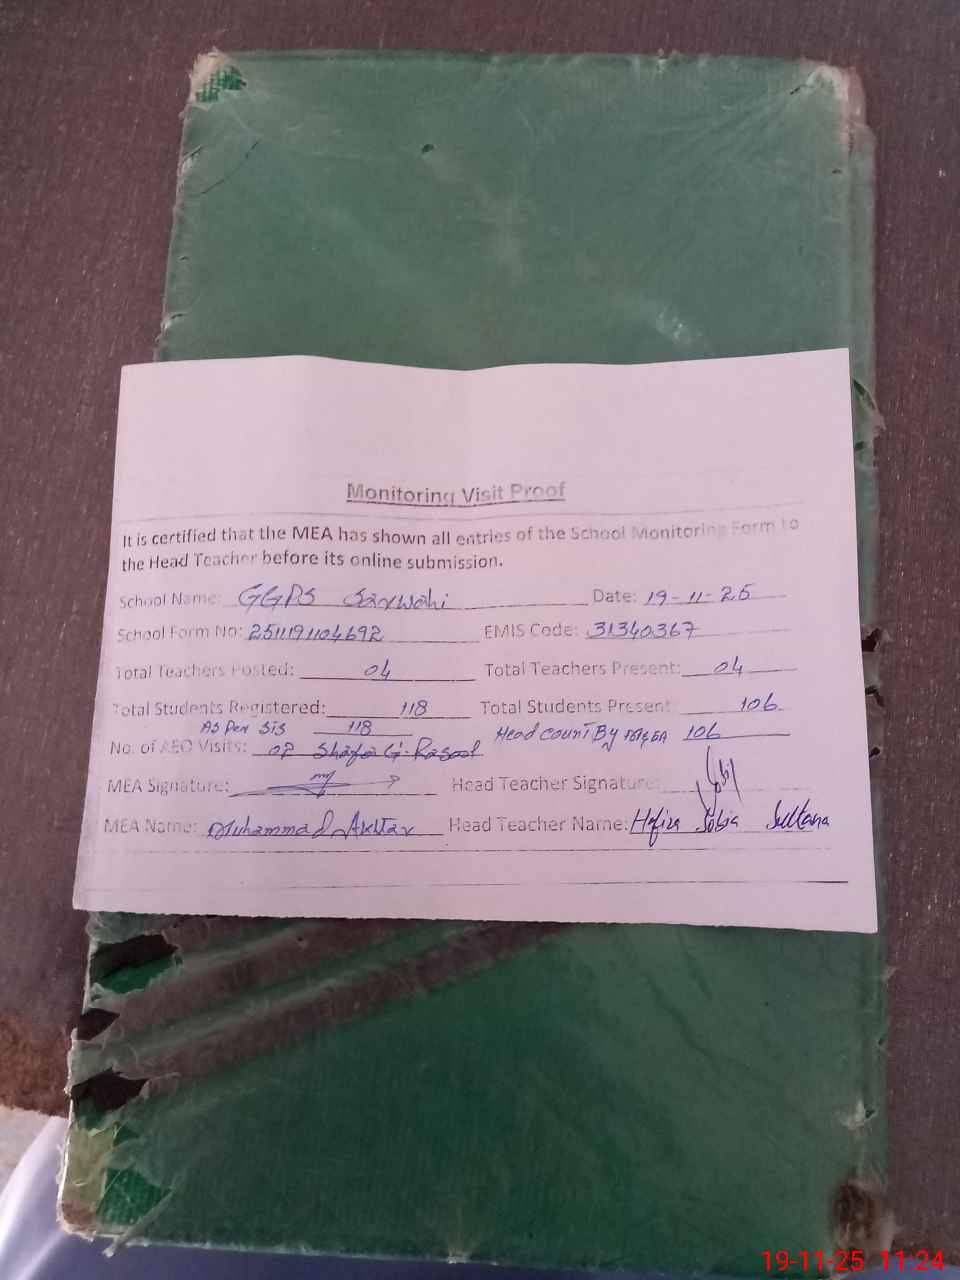 Monitoring Visit Proof
It is certified that the MEA has shown all entries of the School Monitoring Form to
the Head Teacher before its online submission.
School Name: GGPS Sarwahi Date: 19-11-25
School Form No: 251119104692 EMIS Code: 31340367
Total Teachers Posted: 04 Total Teachers Present: 04
Total Students Registered: 118 Total Students Present: 106
As Per SIS 118 Head Count By MEA 106
No. of AEO Visits: Shafa G. Rasool
MEA Signature: Head Teacher Signature:
MEA Name: Muhammad Akhtar Head Teacher Name: Hafiza Sobia Sultana
19-11-25 11:24